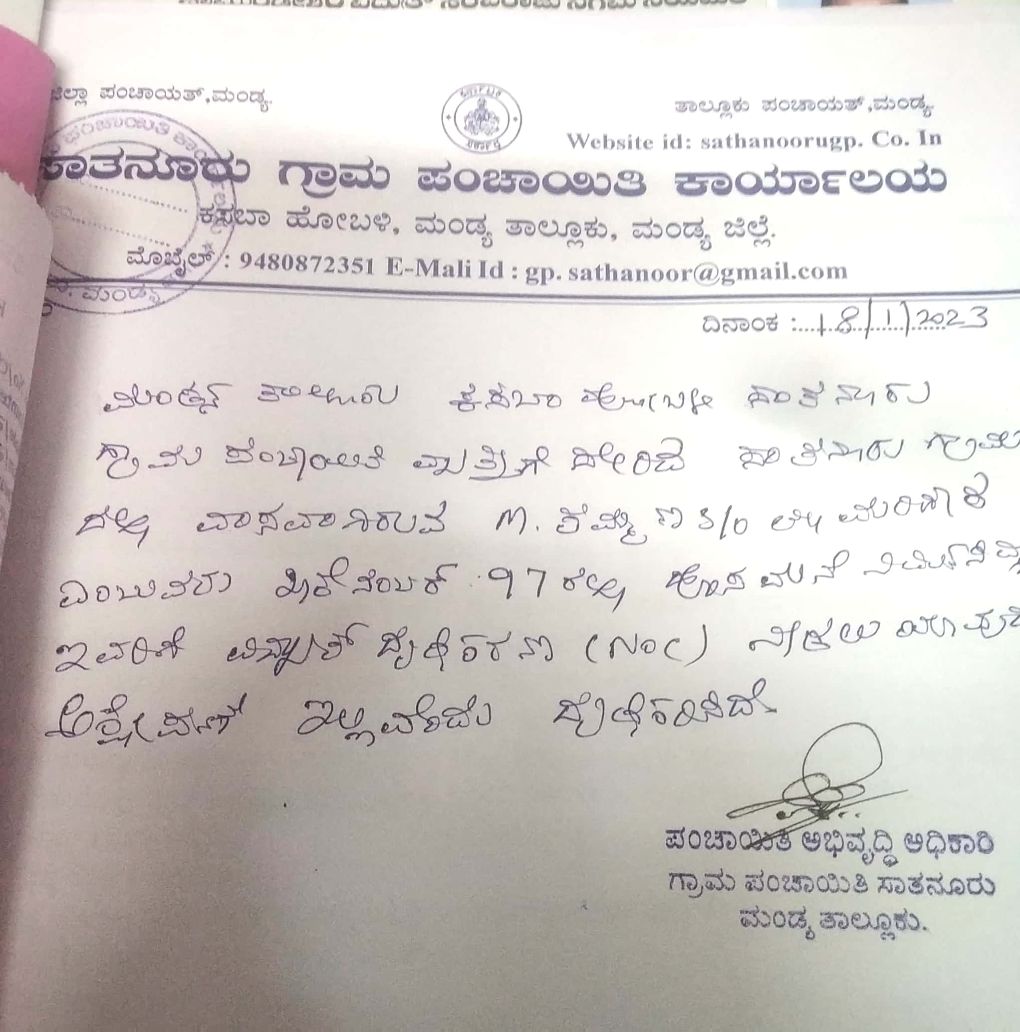 ಜಿಲ್ಲಾ ಪಂಚಾಯತ್,ಮಂಡ್ಯ.
ತಾಲ್ಲೂಕು ಪಂಚಾಯತ್,ಮಂಡ್ಯ.
Website id: sathanoorugp. Co. In
ಸಾತನೂರು ಗ್ರಾಮ ಪಂಚಾಯಿತಿ ಕಾರ್ಯಾಲಯ
ಕಸಬಾ ಹೋಬಳಿ, ಮಂಡ್ಯ ತಾಲ್ಲೂಕು, ಮಂಡ್ಯ ಜಿಲ್ಲೆ.
ಮೊಬೈಲ್ : 9480872351 E-Mali Id : gp. sathanoor@gmail.com
ದಿನಾಂಕ :...18/1/2023
ಮಂಡ್ಯ ತಾಲ್ಲೂಕು ಕಸಬಾ ಹೋಬಳಿ ಸಾತನೂರು
ಗ್ರಾಮ ಪಂಚಾಯಿತಿ ವ್ಯಾಪ್ತಿಗೆ ಸೇರಿದ ಸಾತನೂರು ಗ್ರಾಮ
ದಲ್ಲಿ ವಾಸವಾಗಿರುವ M. S/o
ಎಂಬುವರು ನಂಬರ್ 97 ರಲ್ಲಿ ಹೊಸ ಮನೆ
ಇವರಿಗೆ ವಿದ್ಯುತ್ ದೃಢೀಕರಣ (NOC) ನೀಡಲು ಯಾವುದೇ
ಆಕ್ಷೇಪಣೆ ಇಲ್ಲವೆಂದು ದೃಢೀಕರಿಸಿದೆ
ಪಂಚಾಯಿತಿ ಅಭಿವೃದ್ಧಿ ಅಧಿಕಾರಿ
ಗ್ರಾಮ ಪಂಚಾಯಿತಿ ಸಾತನೂರು
ಮಂಡ್ಯ ತಾಲ್ಲೂಕು.